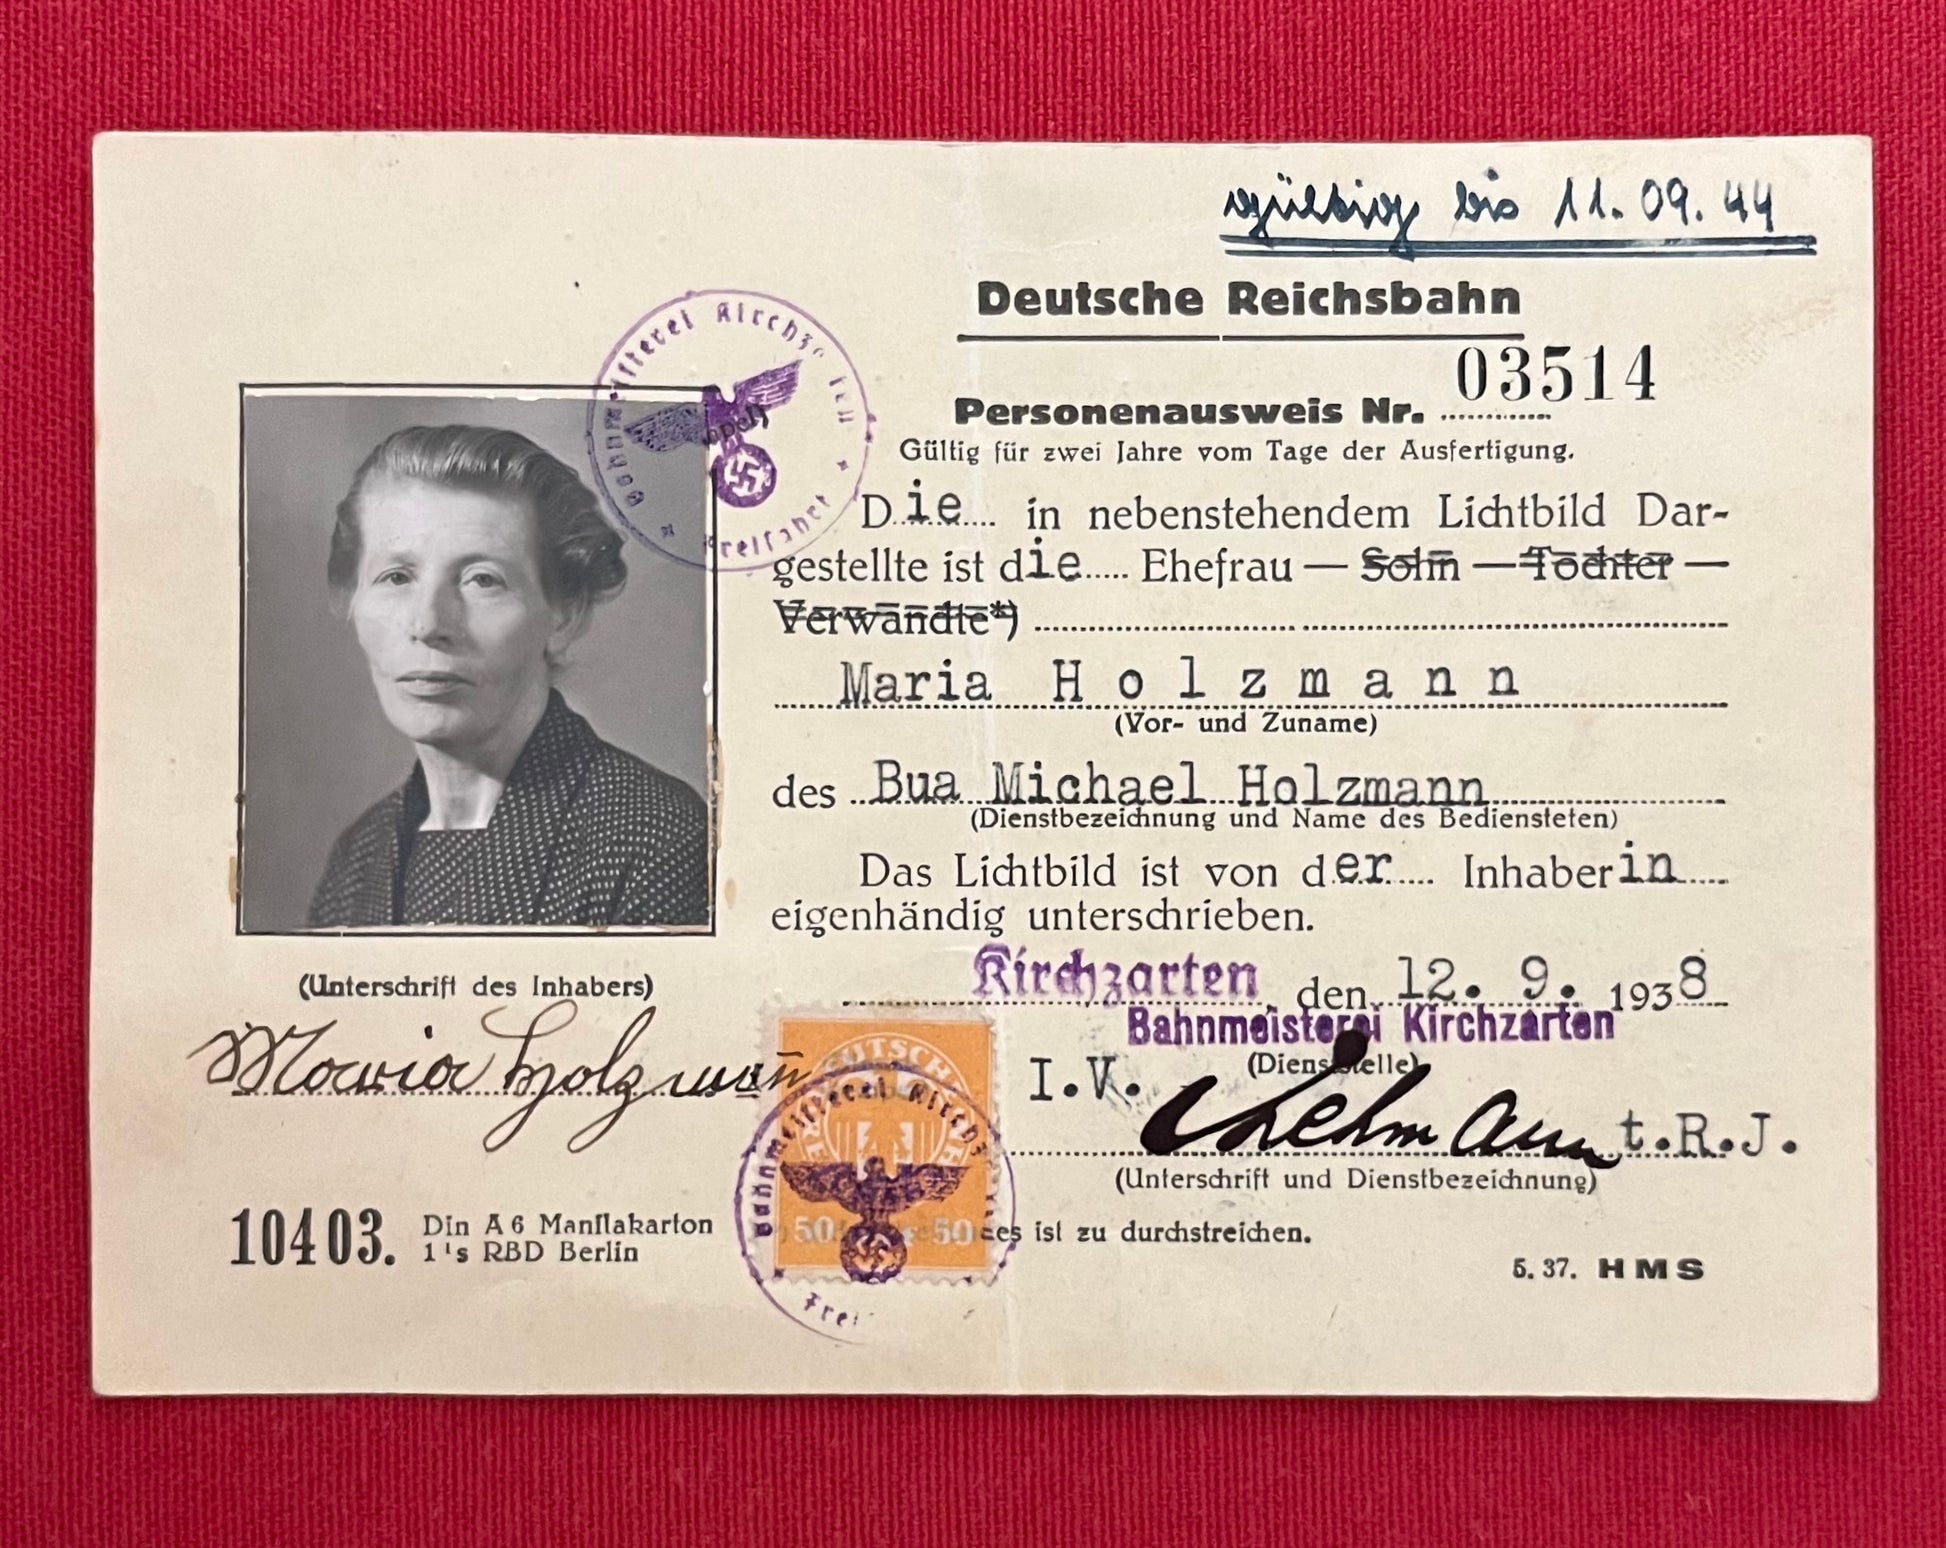 gültig bis 11.09.44
Deutsche Reichsbahn
03514
Personenausweis Nr.
Gültig für zwei Jahre vom Tage der Ausfertigung.
Die in nebenstehendem Lichtbild Dar-
gestellte ist die Ehefrau — Sohn — Tochter —
Verwandte*)
Maria Holzmann
(Vor- und Zuname)
des Bua Michael Holzmann
(Dienstbezeichnung und Name des Bediensteten)
Das Lichtbild ist von der Inhaberin
eigenhändig unterschrieben.
Kirchzarten, den 12. 9. 1938
Bahnmeisterei Kirchzarten
(Dienststelle)
I.V. Lehmann t.R.J.
(Unterschrift und Dienstbezeichnung)
es ist zu durchstreichen.
5. 37. HMS
Bahnmeisterei Kirchzarten
Freifahrt
(Unterschrift des Inhabers)
Maria Holzmann
Bahnmeisterei Kirchz
Frei
50 50
10403. Din A 6 Manilakarton
1's RBD Berlin